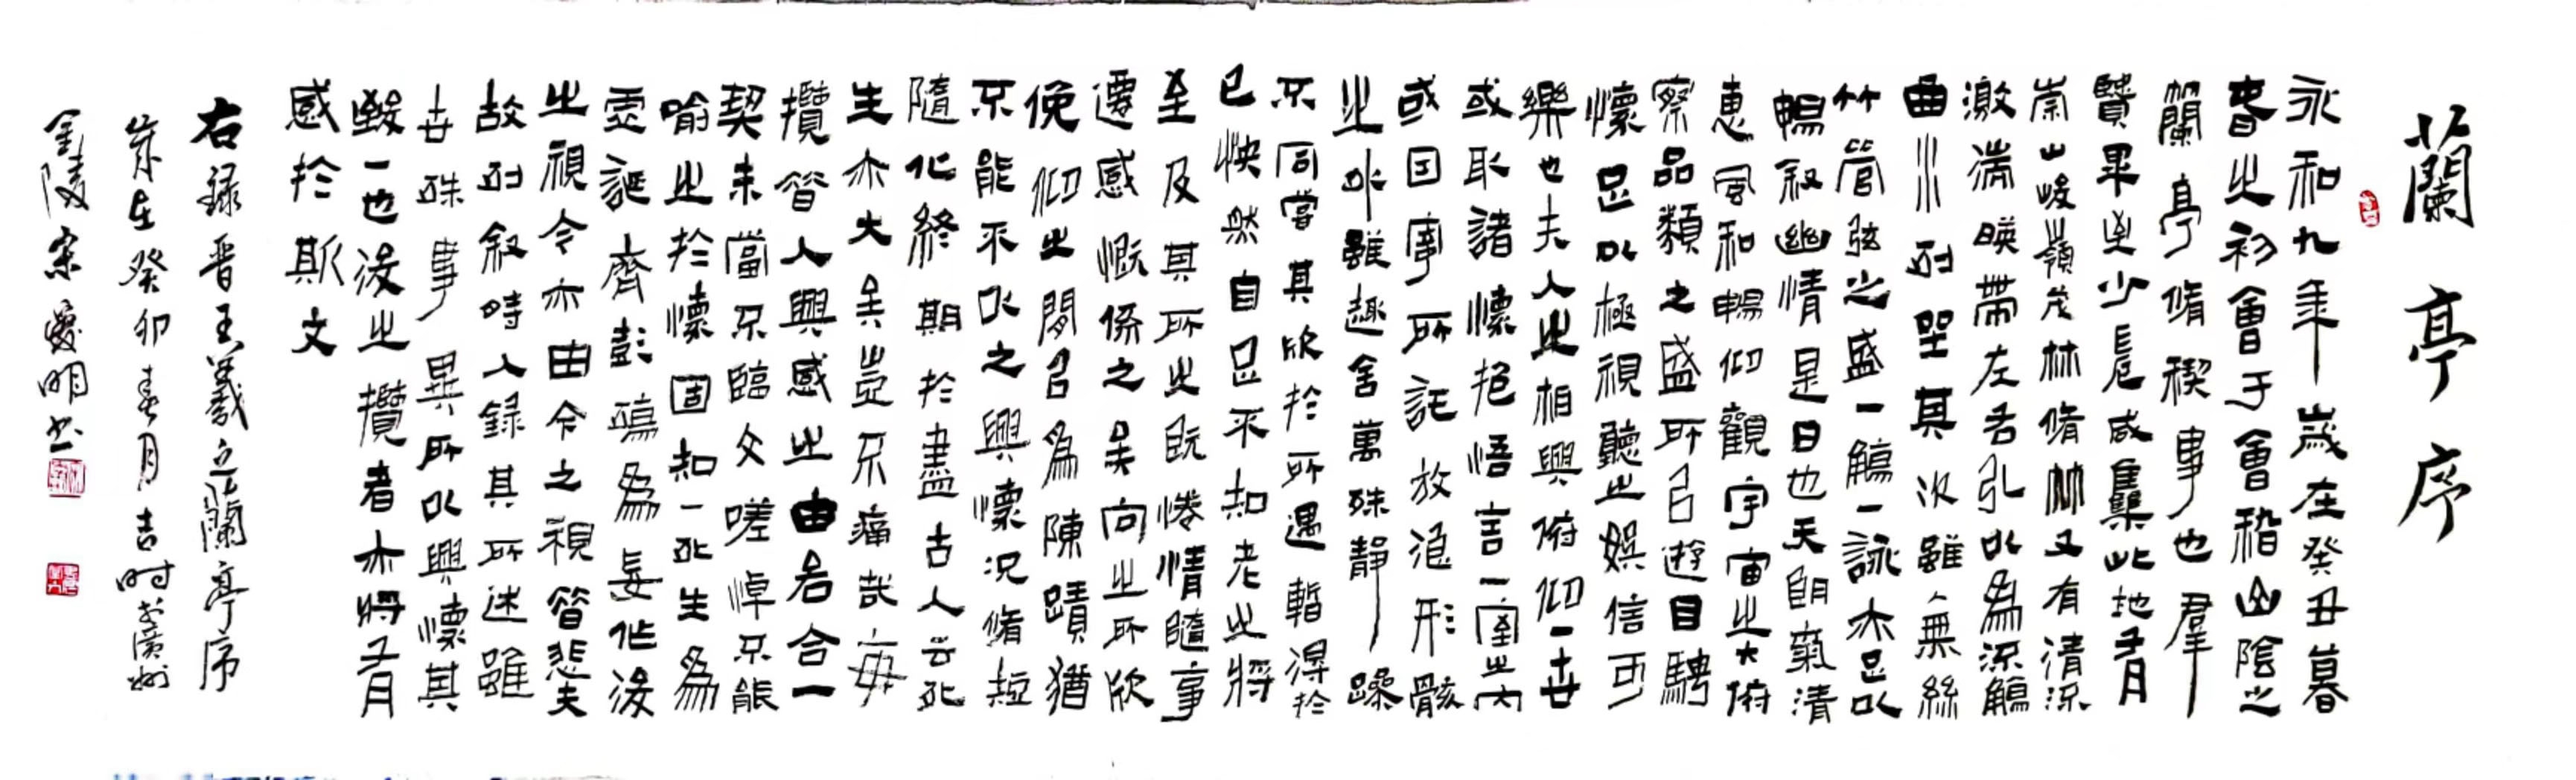 蘭亭序
永和九年歲在癸丑暮
春之初會于會稽山陰之
蘭亭脩禊事也羣
賢畢至少長咸集此地有
崇山峻嶺茂林脩竹又有清流
激湍暎帶左右引以為流觴
曲水列坐其次雖無絲
竹管弦之盛一觴一詠亦足以
暢敘幽情是日也天朗氣清
惠風和暢仰觀宇宙之大俯
察品類之盛所以遊目騁
懷足以極視聽之娛信可
樂也夫人之相與俯仰一世
或取諸懷抱悟言一室之內
或因事所託放浪形骸
之外雖趣舍萬殊靜躁
不同當其欣於所遇暫得於
已快然自足不知老之將
至及其所之既惓情隨事
遷感慨係之矣向之所欣
俛仰之間以為陳蹟猶
不能不以之興懷況脩短
隨化終期於盡古人云死
生亦大矣豈不痛哉每
攬昔人興感之由若合一
契未嘗不臨文嗟悼不能
喻之於懷固知一死生為
虛誕齊彭殤為妄作後
之視今亦由今之視昔悲夫
故列敘時人録其所述雖
世殊事異所以興懷其
致一也後之攬者亦將有
感於斯文
右録晉王羲之蘭亭序
歲在癸卯春月吉時書廣州
金陵宋愛明書